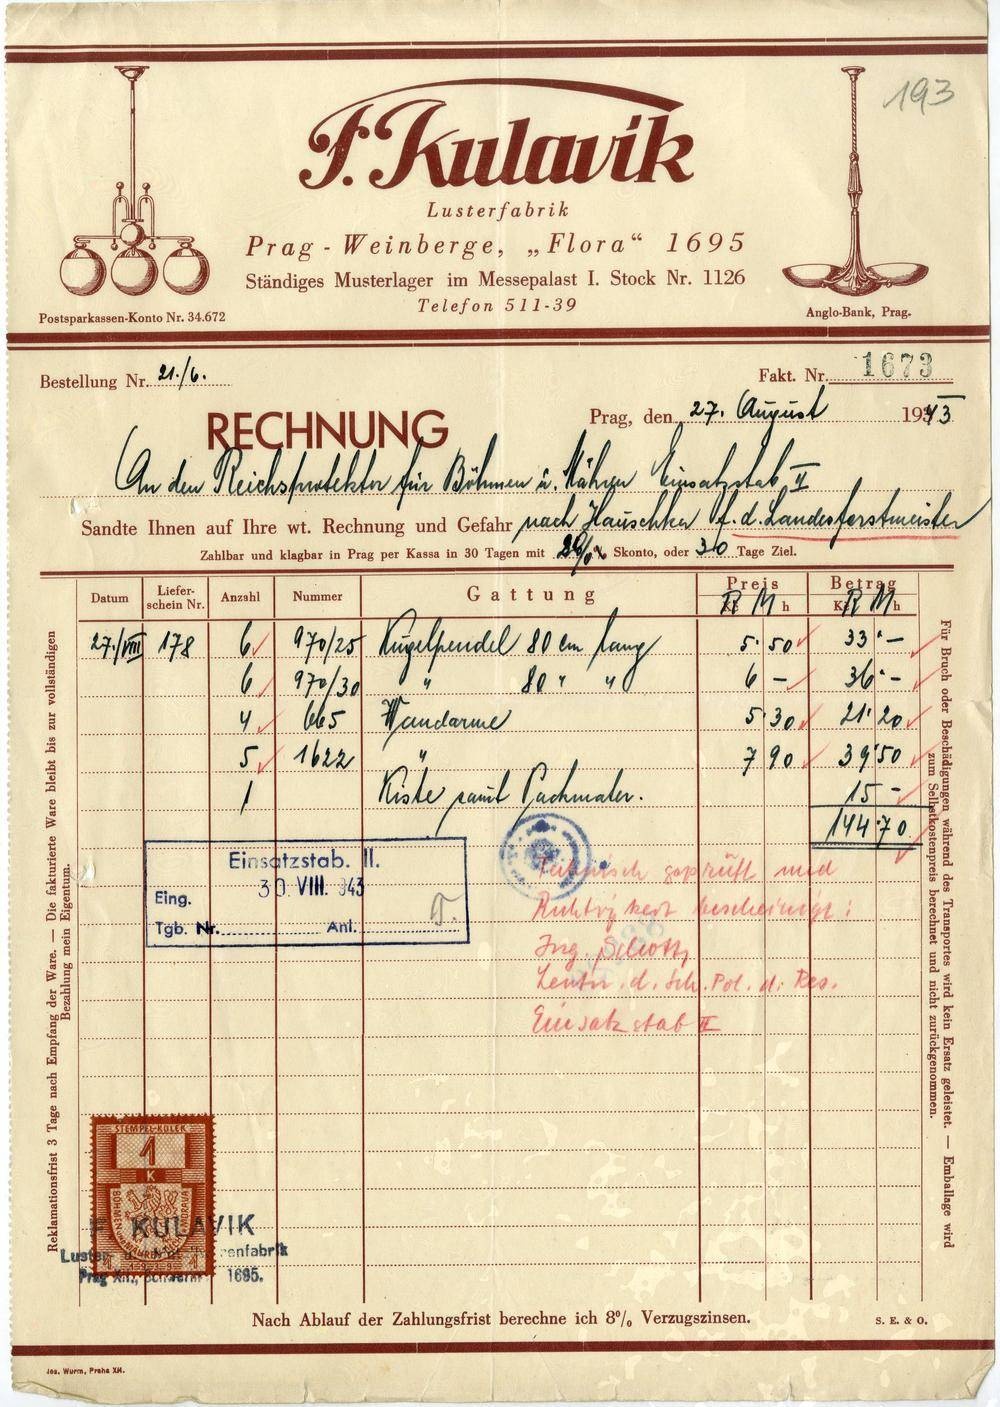 193
F. Kulavik
Lusterfabrik
Prag - Weinberge, „Flora“ 1695
Ständiges Musterlager im Messepalast I. Stock Nr. 1126
Telefon 511-39
Postsparkassen-Konto Nr. 34.672
Anglo-Bank, Prag.
Bestellung Nr. 21./6.
Fakt. Nr. 1673
RECHNUNG
Prag, den 27. August 1943
An den Reichsprotektor für Böhmen u. Mähren Einsatzstab II
Sandte Ihnen auf Ihre wt. Rechnung und Gefahr nach Hauschka f. d. Landesforstmeister
Zahlbar und klagbar in Prag per Kassa in 30 Tagen mit % Skonto, oder 30 Tage Ziel.
Datum Liefer-schein Nr. Anzahl Nummer Gattung Preis RM h Betrag RM h
27./VIII 178 6 970/25 Kugelpendel 80 cm lang 5·50 33·—
6 970/30 " 80 " " 6 — 36·—
4 665 Wandarme 5·30 21·20
5 1622 " 7 90 39·50
1 Kiste samt Packmater. 15 —
144·70
Einsatzstab. II.
30. VIII. 943
Eing.
Tgb. Nr. Anl.
Technisch geprüft und
Richtigkeit bescheinigt:
Ing. Schott
Leutn. d. Sch. Pol. d. Res.
Einsatzstab II
Reklamationsfrist 3 Tage nach Empfang der Ware. — Die fakturierte Ware bleibt bis zur vollständigen
Bezahlung mein Eigentum.
Für Bruch oder Beschädigungen während des Transportes wird kein Ersatz geleistet. — Emballage wird
zum Selbstkostenpreis berechnet und nicht zurückgenommen.
STEMPEL-KOLEK
1
K
BÖHMEN UND MÄHREN
MORAVA
F. KULAVIK
1695.
Nach Ablauf der Zahlungsfrist berechne ich 8% Verzugszinsen.
S. E. & O.
Jos. Wurm, Praha XII.